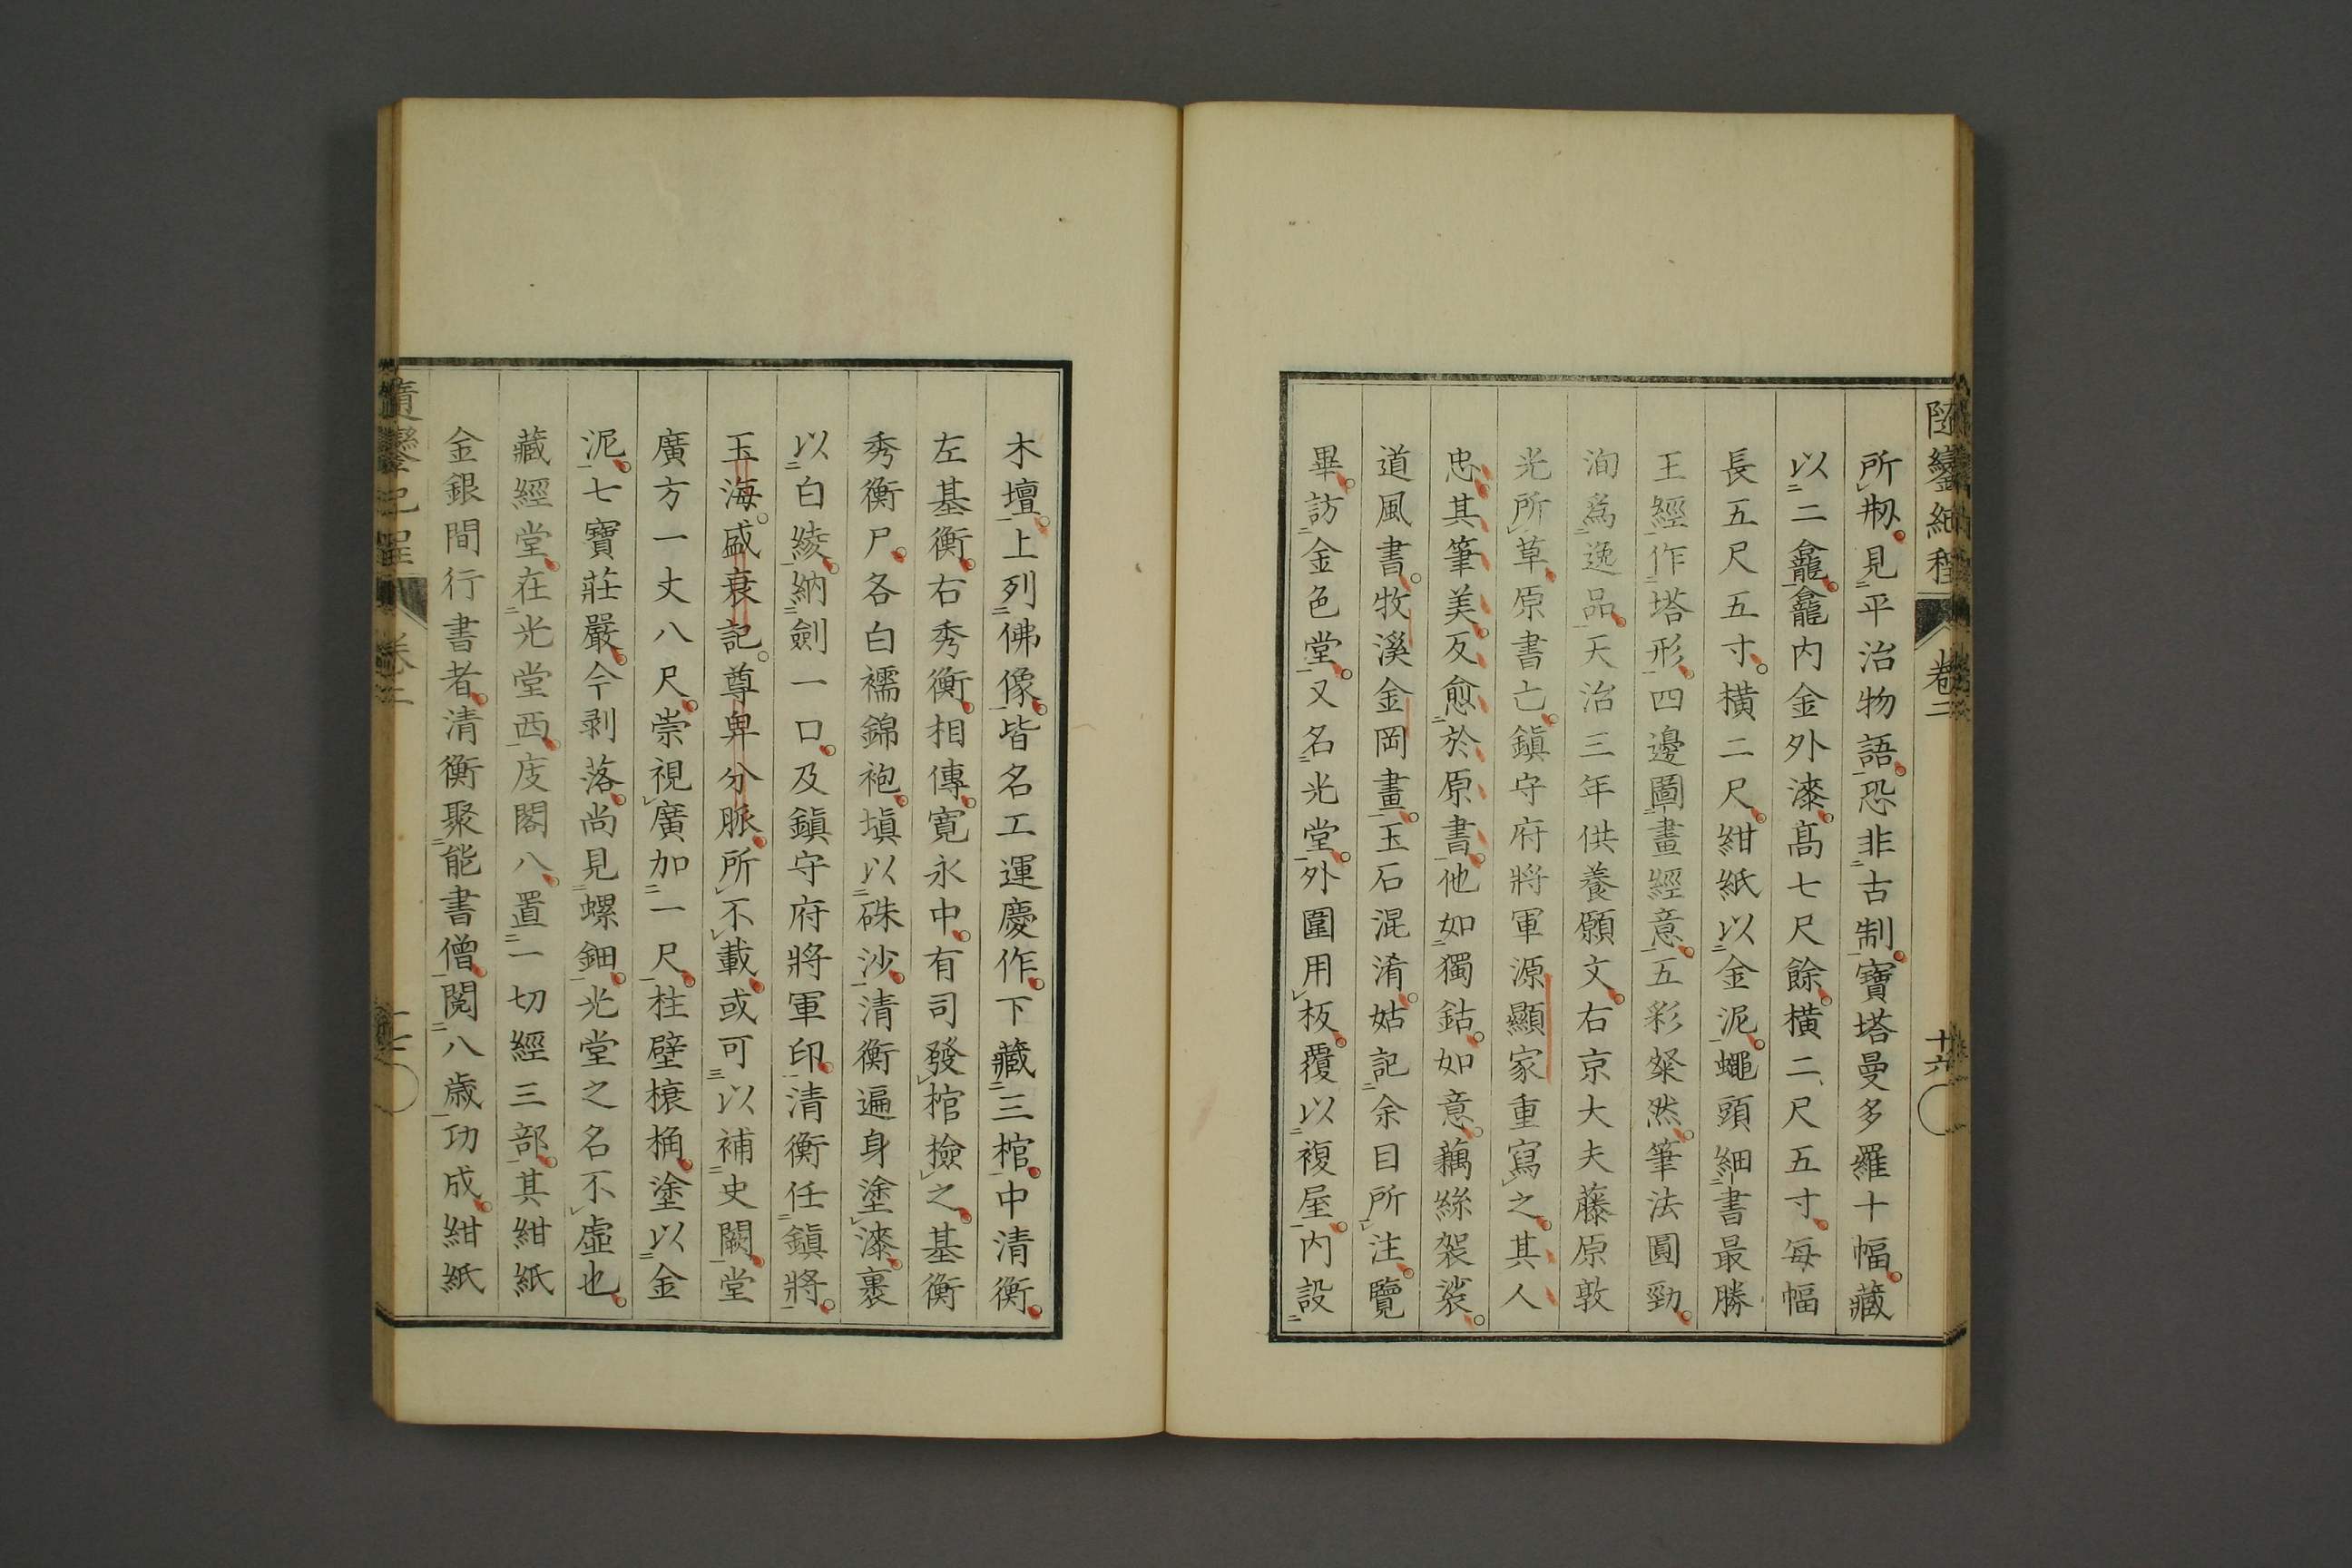 隨鑾紀程 卷二 十六
所刱見平治物語恐非古制寶塔曼多羅十幅藏
以二龕龕内金外漆髙七尺餘横二尺五寸每幅
長五尺五寸横二尺紺紙以金泥蠅頭細書最勝
王經作塔形四邊圖畫經意五彩粲然筆法圓勁
洵爲逸品天治三年供養願文右京大夫藤原敦
光所草原書亡鎭守府將軍源顯家重寫之其人
忠其筆美反愈於原書他如獨鈷如意藕絲袈裟
道風書牧溪金岡畫玉石混淆姑記余目所注覽
畢訪金色堂又名光堂外圍用板覆以複屋内設
木壇上列佛像皆名工運慶作下藏三棺中清衡
左基衡右秀衡相傳寛永中有司發棺檢之基衡
秀衡尸各白襦錦袍塡以硃沙清衡遍身塗漆裹
以白綾納劍一口及鎭守府將軍印清衡任鎭將
玉海盛衰記尊卑分脈所不載或可以補史闕堂
廣方一丈八尺崇視廣加一尺柱壁榱桷塗以金
泥七寶莊嚴今剥落尚見螺鈿光堂之名不虛也
藏經堂在光堂西庋閣八置一切經三部其紺紙
金銀間行書者清衡聚能書僧閲八歳功成紺紙
隨鑾紀程 卷二